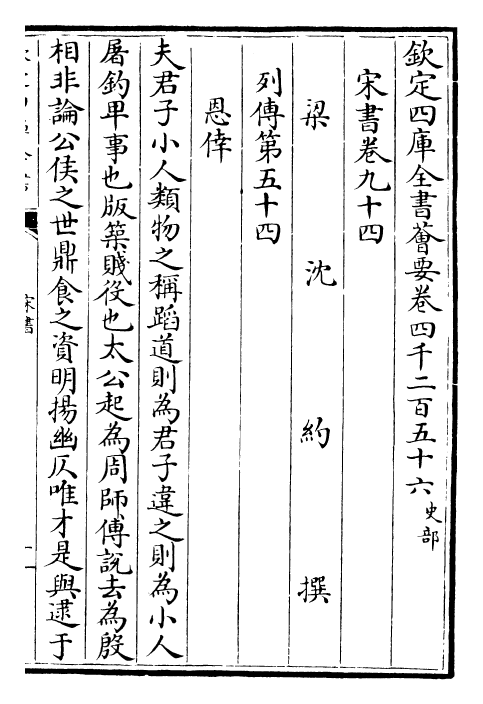 欽定四庫全書薈要卷四千二百五十六史部
宋書卷九十四
梁沈約撰
列傳第五十四
恩倖
夫君子小人類物之稱蹈道則為君子違之則為小人
屠釣卑事也版築賤役也太公起為周師傅說去為殷
相非論公侯之世鼎食之資明揚幽仄唯才是與逮于
宋書